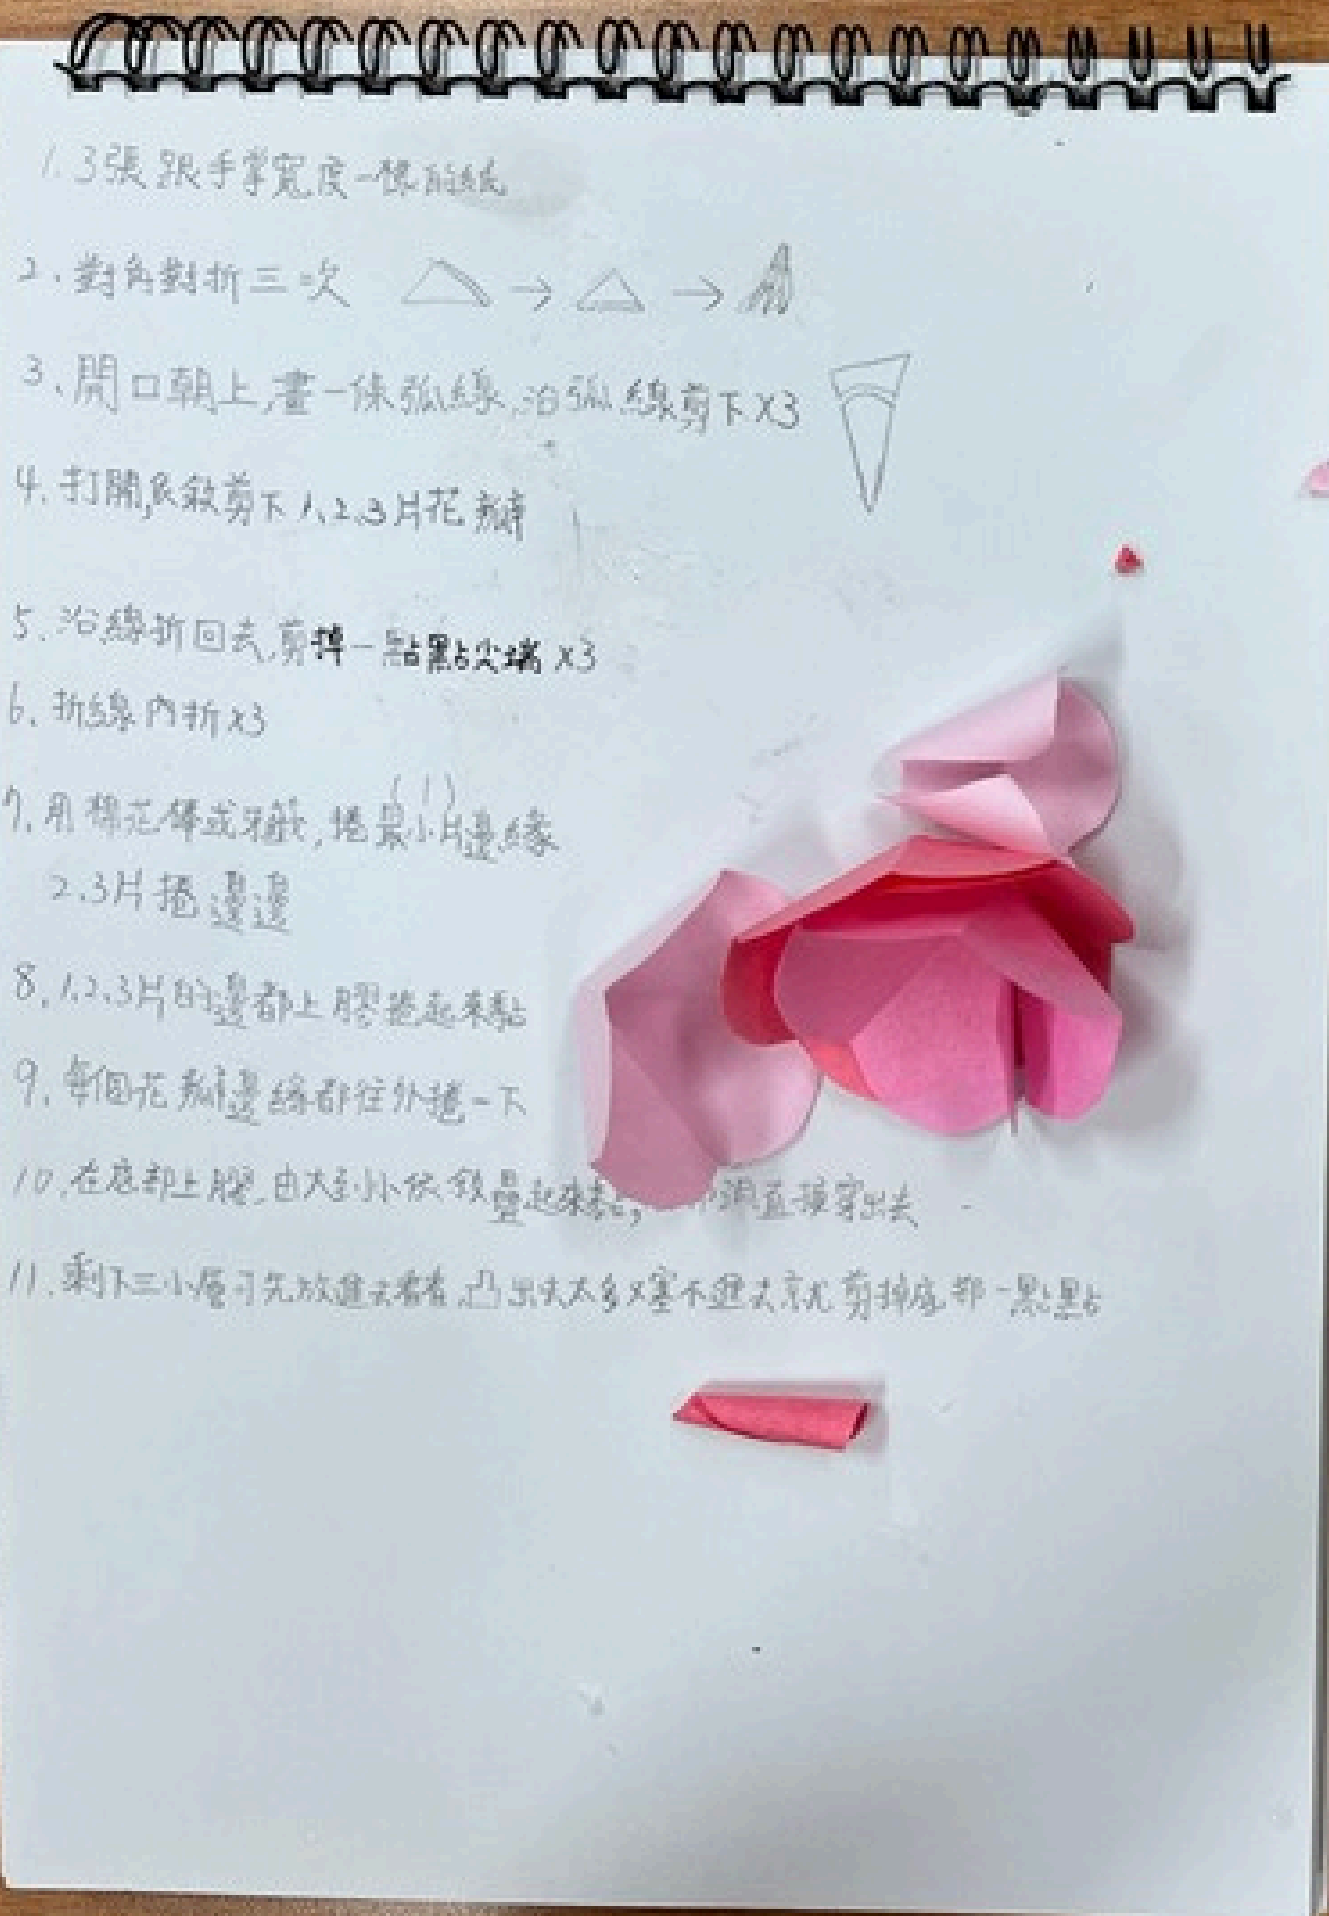 1. 3張跟手掌寬度一樣的紙
2. 對角對折三次 → →
3. 開口朝上,畫一條弧線,沿弧線剪下x3
4. 打開,依敘剪下1.2.3片花瓣
5. 沿線折回去,剪掉一點點尖端x3
6. 折線內折x3
(1)
7. 用棉花棒或牙籤,捲最小片邊緣
2.3片捲邊邊
8. 1.2.3片的邊都上膠捲起來黏
9. 每個花瓣邊緣都往外捲一下
10. 在底部上膠,由大到小依敘疊起來,直接穿出去
11. 剩下三小層可先放進去看看,凸出去太多又塞不進去就剪掉底部一點點